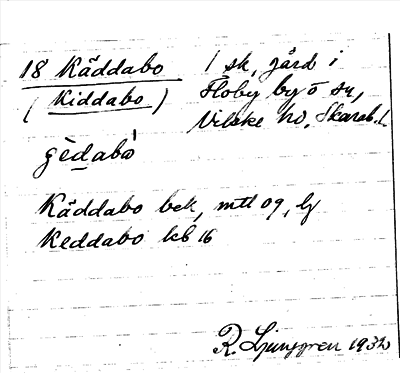 18 Käddabo
(Kiddabo)
1 sk. gård i
Floby by o sn,
Vilske hd. Skarab. l.
gèdabò
Käddabo bek, mtl 09, lj
Keddabo kb 16
R. Ljunggren 1932